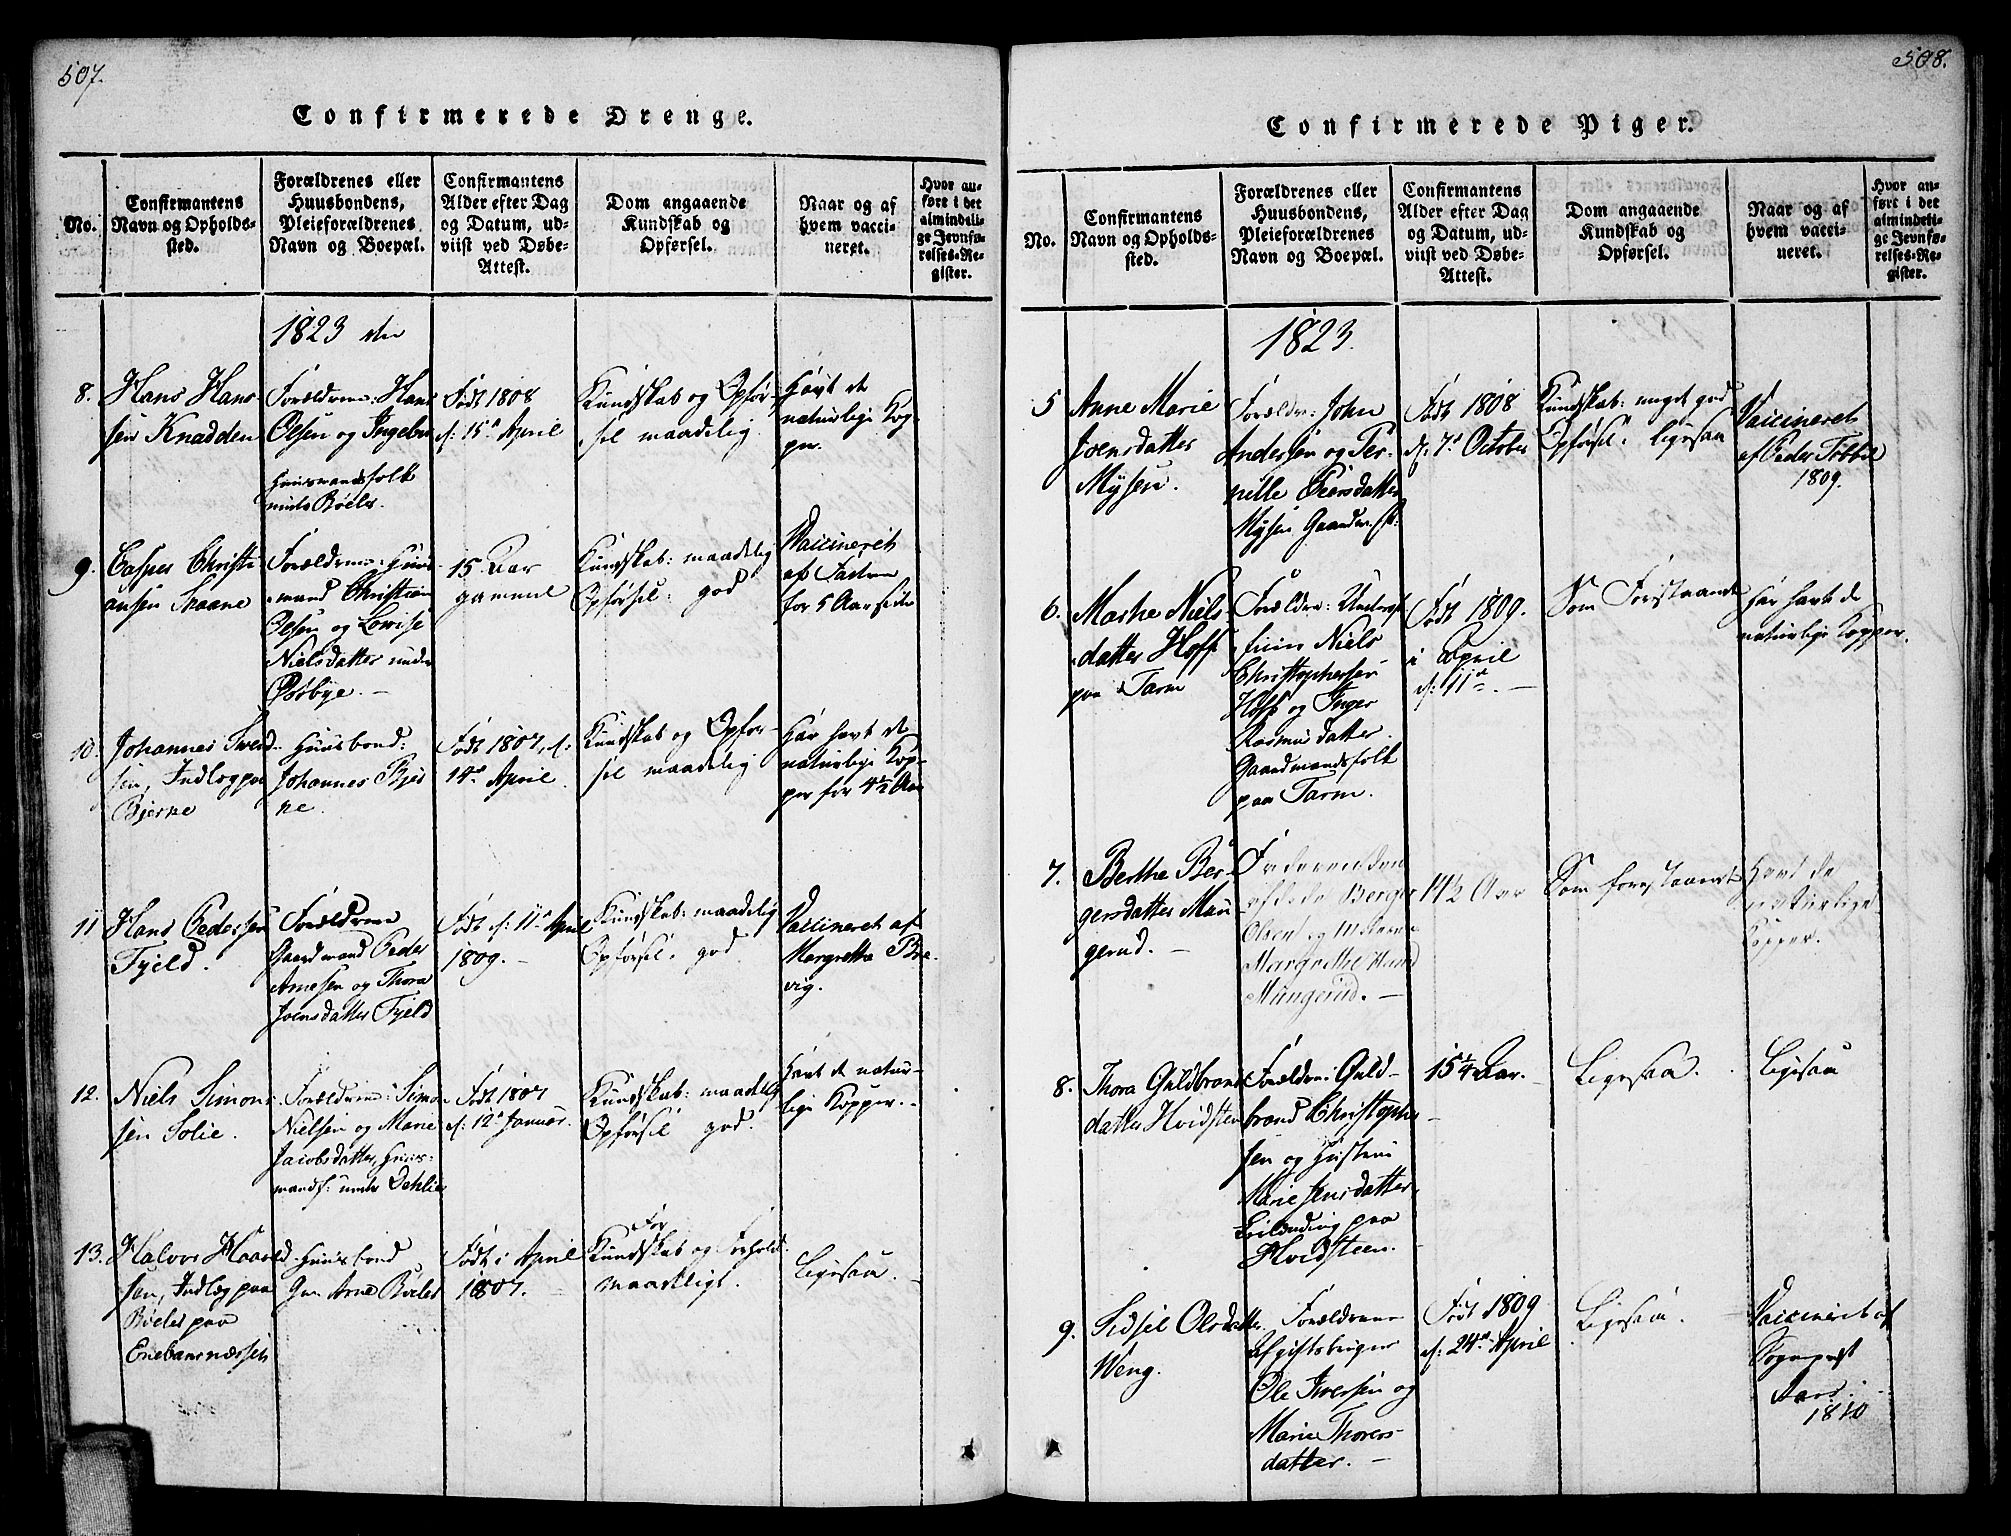 507.
Confirmerede Drenge.
No.
Confirmantens
Navn og Opholds-
sted.
Forældrenes eller
Huusbondens,
Pleieforældrenes
Navn og Boepæl.
Confirmantens
Alder efter Dag
og Datum, ud-
viist ved Døbe-
Attest.
Dom angaaende
Kundskab og
Opførsel.
Naar og af
hvem vacci-
neret.
Hvor an-
ført i det
almindeli-
ge Jevnfø-
relses-Re-
gister.
1823
8.
Hans Han-
sen Knadden
Forældrene: Hans
Olsen og Ingebor
Huusmandsfolk
under Bøeler.
Født 1808
d: 15de April
Kundskab og Opfør-
sel maadelig
Havt de
naturlige Kop-
per.
9.
Casper Christi
ansen Skaane
Forældrene: Huus-
mand Christian
Olsen og Lovise
Nielsdatter under
Østbye.
15 Aar
gammel
Kundskab: maadelig
Opførsel: god
Vaccineret
af
for 5 Aar siden
10.
Johannes Svend-
sen, Indlæg paa
Bjerke
Huusbond:
Johannes Bjer
ke.
Født 1807, d:
14de April
Kundskab og Opfør-
sel maadelig
Har havt de
naturlige Kop-
per for 4½ Aar
11
Hans Pedersen
Fjeld.
Forældrene
Gaardmand Peder
Arnesen og Thora
Joensdatter Fjeld
Født d: 11te April
1809.
Kundskab: maadelig
Opførsel: god
Vaccineret af
Margrethe Bre-
vig.
12.
Niels Simon-
sen Solie.
Forældrene: Simon
Nielsen og Marie
Jacobsdatter, Huus-
mandsf: under Dehlie
Født 1807
d: 12te Januar.
Kundskab: maadelig
Opførsel god.
Havt de natur-
lige Kopper.
13.
Halvor Haavold-
sen, Indlæg paa
Bøeler paa
Enebaknæsset
Huusbond
Arne Bøeler
Født i April
1807.
For
Kundskab og Forhold
maadeligt.
Ligesaa.
508.
Confirmerede Piger.
No.
Confirmantens
Navn og Opholds-
sted.
Forældrenes eller
Huusbondens,
Pleieforældrenes
Navn og Boepæl.
Confirmantens
Alder efter Dag
og Datum, ud-
viist ved Døbe-
Attest.
Dom angaaende
Kundskab og
Opførsel.
Naar og af
hvem vacci-
neret.
Hvor an-
ført i det
almindeli-
ge Jevnfø-
relses-Re-
gister.
1823.
5
Anne Marie
Joensdatter
Mysen.
Forældre: John
Andersen og Per-
nille Peersdatter
Mysen Gaardm:f:
Født 1808
d: 7de October
Kundskab: meget god
Opførsel: ligesaa
Vaccineret
af Peder
1809.
6.
Marthe Niels
datter Hoff
paa Tarm
Forældre:
Niels
Christophersen
Hoff og Inger
Rasmusdatter
Gaardmandsfolk
paa Tarm.
Født 1809.
i April
d: 11te
Som Forstaaende
Har havt de
naturlige Kopper.
7.
Berthe Ber-
gersdatter Mau
gerud.
Faderen den
afdøde Berger
Olsen og Moderen
Margrethe
Mungerud.
14½ Aar
Som forestaaende
Havt de
naturlige
Kopper.
8.
Thora Guldbrands
datter Hvidsten
Forældre: Guld-
brand Christopher
sen og Hustru
Marie Jensdatter,
paa
Hvidsteen.
15¼ Aar.
Ligesaa.
Ligesaa
9.
Sidsel Olsdatter
Weng.
Forældrene
Afgiftsbruger
Ole Iversen og
Marie Thores-
datter.
Født 1809
d: 24de April
Ligesaa.
Vaccineret af
Sognepræst
Aars.
1810